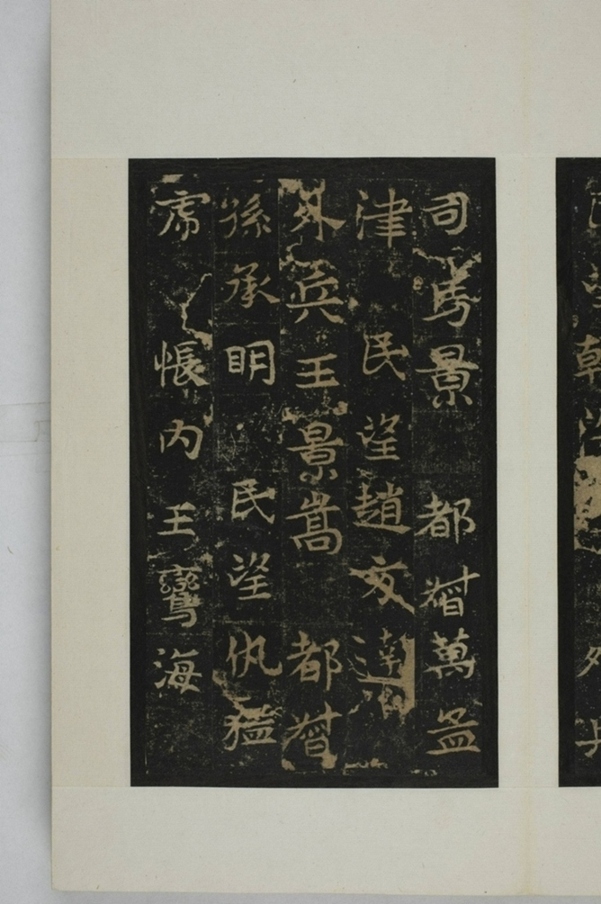 司馬景 都督萬孟
津 民望趙文達
外兵王景嵩 都督
孫承明 民望仇猛
席 帳內王鸞海
望朝
外兵